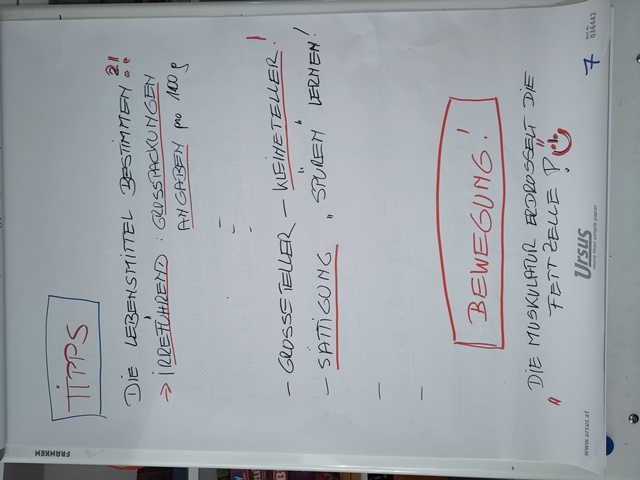 TIPPS
DIE LEBENSMITTEL BESTIMMEN ?!
» IRREFÜHREND : GROSSPACKUNGEN
ANGABEN pro 100 g
- GROSSETELLER - KLEINETELLER !
- SÄTTIGUNG „SPÜREN" LERNEN!
BEWEGUNG!
„DIE MUSKULATUR ERDROSSELT DIE
FETTZELLE"
7
036442
Ursus
www.ursus.at
FRANKEN